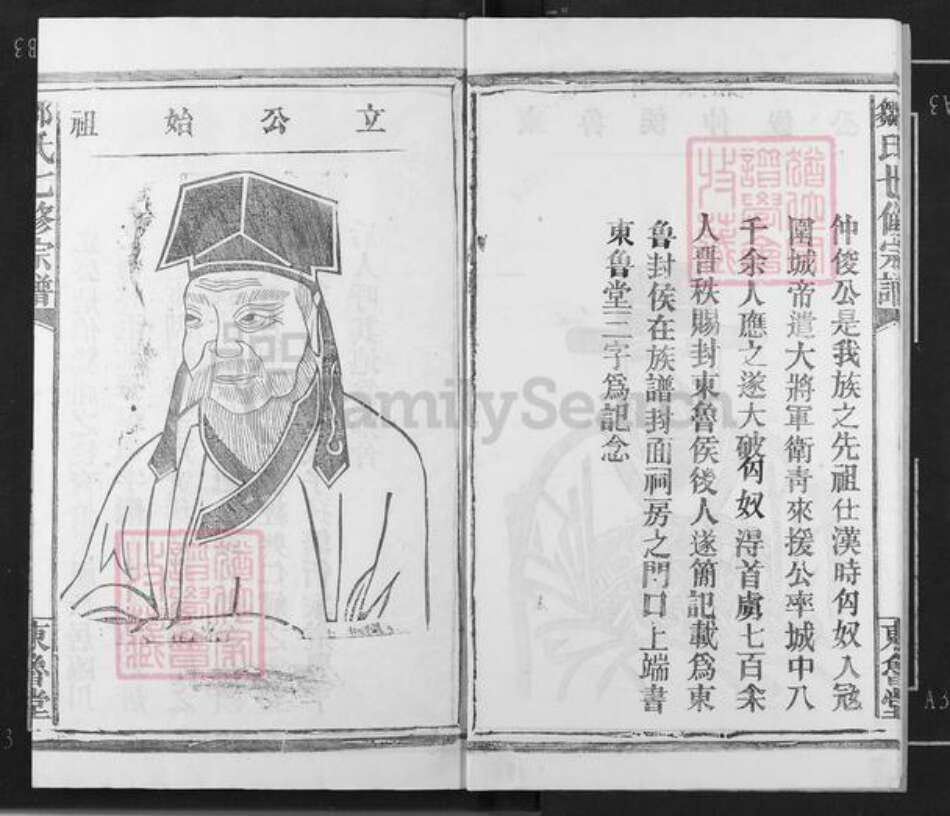 鄒氏七修宗譜
仲俊公是我族之先祖仕漢時匈奴入冦
圍城帝遣大將軍衛青來援公率城中八
千余人應之遂大破匈奴淂首虜七百余
人晋秩賜封東魯侯後人遂簡記載爲東
魯封侯在族譜封面祠房之門口上端書
東魯堂三字爲記念
東魯堂
立公始祖
鄒氏七修宗譜
東魯堂
FamilySearch
A3
A3
B3
3